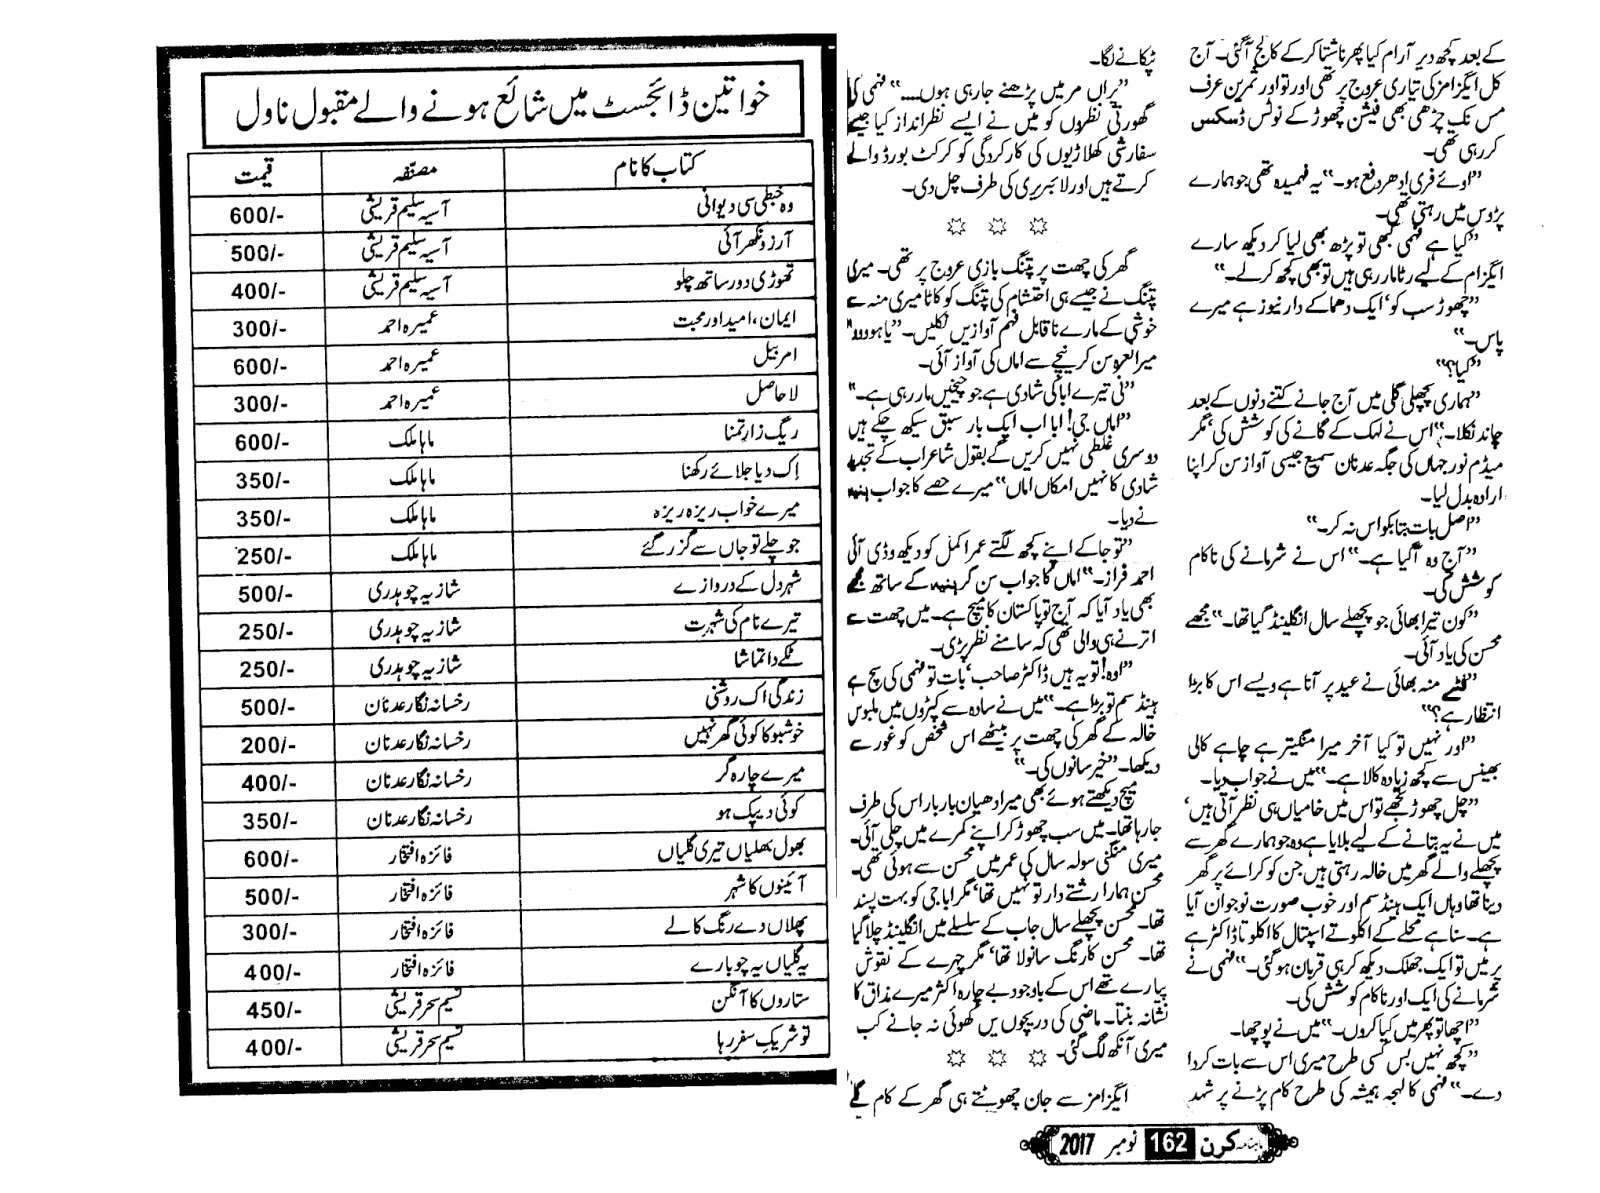 کے بعد کچھ دیر آرام کیا پھر ناشتا کر کے کالج آ گئی۔ آج
کل ایگزامز کی تیاری عروج پر تھی اور تو اور ثمرین عرف
مس نک چڑھی بھی فیشن چھوڑ کے نوٹس ڈسکس
کر رہی تھی۔
”اوئے فری ادھر دفع ہو۔“ یہ فہمیدہ تھی جو ہمارے
پڑوس میں رہتی تھی۔
”کیا ہے فہمی کبھی تو پڑھ بھی لیا کر دیکھ سارے
ایگزام کے لیے رٹا مار رہی ہیں تو بھی کچھ کر لے۔“
”چھوڑ سب کو‘ ایک دھماکے دار نیوز ہے میرے
پاس۔“
”کیا؟“
”ہماری پچھلی گلی میں آج جانے کتنے دنوں کے بعد
چاند نکلا۔“ اس نے لہک کے گانے کی کوشش کی‘ مگر
میڈم نور جہاں کی جگہ عدنان سمیع جیسی آواز سن کر اپنا
ارادہ بدل لیا۔
”اصل بات بتا بکواس نہ کر۔“
”آج وہ آگیا ہے۔“ اس نے شرمانے کی ناکام
کوشش کی۔
”کون تیرا بھائی جو پچھلے سال انگلینڈ گیا تھا۔“ مجھے
محسن کی یاد آئی۔
منہ بھائی نے عید پر آنا ہے ویسے اس کا بڑا
انتظار ہے؟“
”اور نہیں تو کیا آخر میرا منگیتر ہے چاہے کالی
بھینس سے کچھ زیادہ کالا ہے۔“ میں نے جواب دیا۔
”چل چھوڑ تجھے تو اس میں خامیاں ہی نظر آتی ہیں‘
میں نے یہ بتانے کے لیے بلایا ہے وہ جو ہمارے گھر سے
پچھلے والے گھر میں خالہ رہتی ہیں جن کو کرائے پر گھر
دینا تھا وہاں ایک ہینڈسم اور خوب صورت نوجوان آیا
ہے۔ سنا ہے محلے کے اکلوتے اسپتال کا اکلوتا ڈاکٹر ہے
پر میں تو ایک جھلک دیکھ کر ہی قربان ہو گئی۔“ فہمی نے
شرمانے کی ایک اور ناکام کوشش کی۔
”اچھا تو پھر میں کیا کروں۔“ میں نے پوچھا۔
”کچھ نہیں بس کسی طرح میری اس سے بات کروا
دے۔“ فہمی کا لہجہ ہمیشہ کی طرح کام پڑنے پر شہد
ٹپکانے لگا۔
”پراں مر میں پڑھنے جا رہی ہوں۔۔۔۔“ فہمی کی
گھورتی نظروں کو میں نے ایسے نظر انداز کیا جیسے
سفارشی کھلاڑیوں کی کارکردگی کو کرکٹ بورڈ والے
کرتے ہیں اور لائبریری کی طرف چل دی۔
☼ ☼ ☼
گھر کی چھت پر پتنگ بازی عروج پر تھی۔ میری
پتنگ نے جیسے ہی احتشام کی پتنگ کو کاٹا میری منہ سے
خوشی کے مارے ناقابل فہم آوازیں نکلیں۔ ”یاہوووو“
میرا نعرہ سن کر نیچے سے اماں کی آواز آئی۔
”نی تیرے ابا کی شادی ہے جو چیخیں مار رہی ہے۔“
”اماں جی! ابا اب ایک بار سبق سیکھ چکے ہیں
دوسری غلطی نہیں کریں گے بقول شاعر اب کے تجدید
شادی کا نہیں امکاں اماں“ میرے حصے کا جواب
نے دیا۔
”تو جا کے اپنے کچھ لگتے عمر اکمل کو دیکھ وڈی آئی
احمد فراز۔“ اماں کا جواب سن کر کے ساتھ مجھے
بھی یاد آیا کہ آج تو پاکستان کا میچ ہے۔ میں چھت سے
اترنے ہی والی تھی کہ سامنے نظر پڑی۔
”اوہ! تو یہ ہیں ڈاکٹر صاحب‘ بات تو فہمی کی سچ ہے
ہینڈسم تو بڑا ہے۔“ میں نے سادہ سے کپڑوں میں ملبوس
خالہ کے گھر کی چھت پر بیٹھے اس شخص کو غور سے
دیکھا۔ ”خیر سانوں کی۔“
میچ دیکھتے ہوئے بھی میرا دھیان بار بار اس کی طرف
جا رہا تھا۔ میں سب چھوڑ کر اپنے کمرے میں چلی آئی۔
میری منگنی سولہ سال کی عمر میں محسن سے ہوئی تھی۔
محسن ہمارا رشتے دار تو نہیں تھا‘ مگر ابا جی کو بہت پسند
تھا۔ محسن پچھلے سال جاب کے سلسلے میں انگلینڈ چلا گیا
تھا۔ محسن کا رنگ سانولا تھا‘ مگر چہرے کے نقوش
پیارے تھے اس کے باوجود بے چارہ اکثر میرے مذاق کا
نشانہ بنتا۔ ماضی کی دریچوں میں کھوئی نہ جانے کب
میری آنکھ لگ گئی۔
☼ ☼ ☼
ایگزامز سے جان چھوٹتے ہی گھر کے کام گلے
خواتین ڈائجسٹ میں شائع ہونے والے مقبول ناول
کتاب کا نام مصنفہ قیمت
وہ خبطی سی دیوانی آسیہ سلیم قریشی 600/-
آرزو نکھر آئی آسیہ سلیم قریشی 500/-
تھوڑی دور ساتھ چلو آسیہ سلیم قریشی 400/-
ایمان، امید اور محبت عمیرہ احمد 300/-
امر بیل عمیرہ احمد 600/-
لا حاصل عمیرہ احمد 300/-
ریگ زارِ تمنا ماہا ملک 600/-
اِک دیا جلائے رکھنا ماہا ملک 350/-
میرے خواب ریزہ ریزہ ماہا ملک 350/-
جو چلے تو جاں سے گزر گئے ماہا ملک 250/-
شہر دل کے دروازے شازیہ چوہدری 500/-
تیرے نام کی شہرت شازیہ چوہدری 250/-
ٹکے دا تماشا شازیہ چوہدری 250/-
زندگی اک روشنی رخسانہ نگار عدنان 500/-
خوشبو کا کوئی گھر نہیں رخسانہ نگار عدنان 200/-
میرے چارہ گر رخسانہ نگار عدنان 400/-
کوئی دیپک ہو رخسانہ نگار عدنان 350/-
بھول بھلیاں تیری گلیاں فائزہ افتخار 600/-
آئینوں کا شہر فائزہ افتخار 500/-
پھلاں دے رنگ کالے فائزہ افتخار 300/-
یہ گلیاں یہ چوبارے فائزہ افتخار 400/-
ستاروں کا آنگن نسیم سحر قریشی 450/-
تو شریکِ سفر رہا نسیم سحر قریشی 400/-
ماہنامہ کرن 162 نومبر 2017